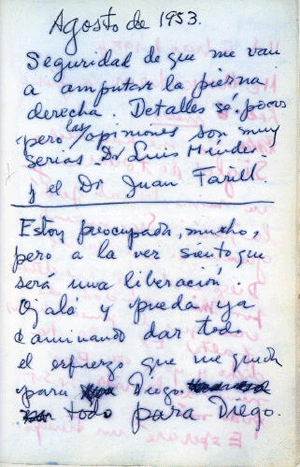 Agosto de 1953.
Seguridad de que me van
a amputar la pierna
derecha. Detalles sé pocos
pero las opiniones son muy
serias. Dr Luis Méndez
y el Dr Juan Farill.
Estoy preocupada, mucho,
pero a la vez siento que
será una liberación.
Ojalá y pueda ya
caminando dar todo
el esfuerzo que me queda
para Diego
todo para Diego.